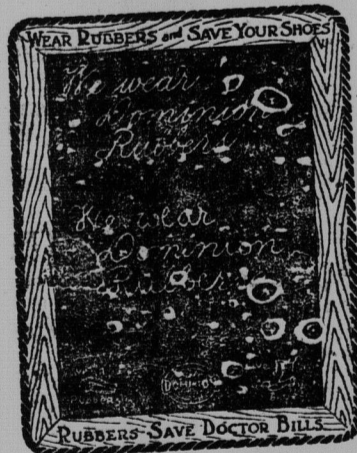 WEAR RUBBERS and SAVE YOUR SHOES
We wear
Dominion
Rubbers
We wear
Dominion
Rubbers
DOMINION
RUBBERS
RUBBERS SAVE DOCTOR BILLS